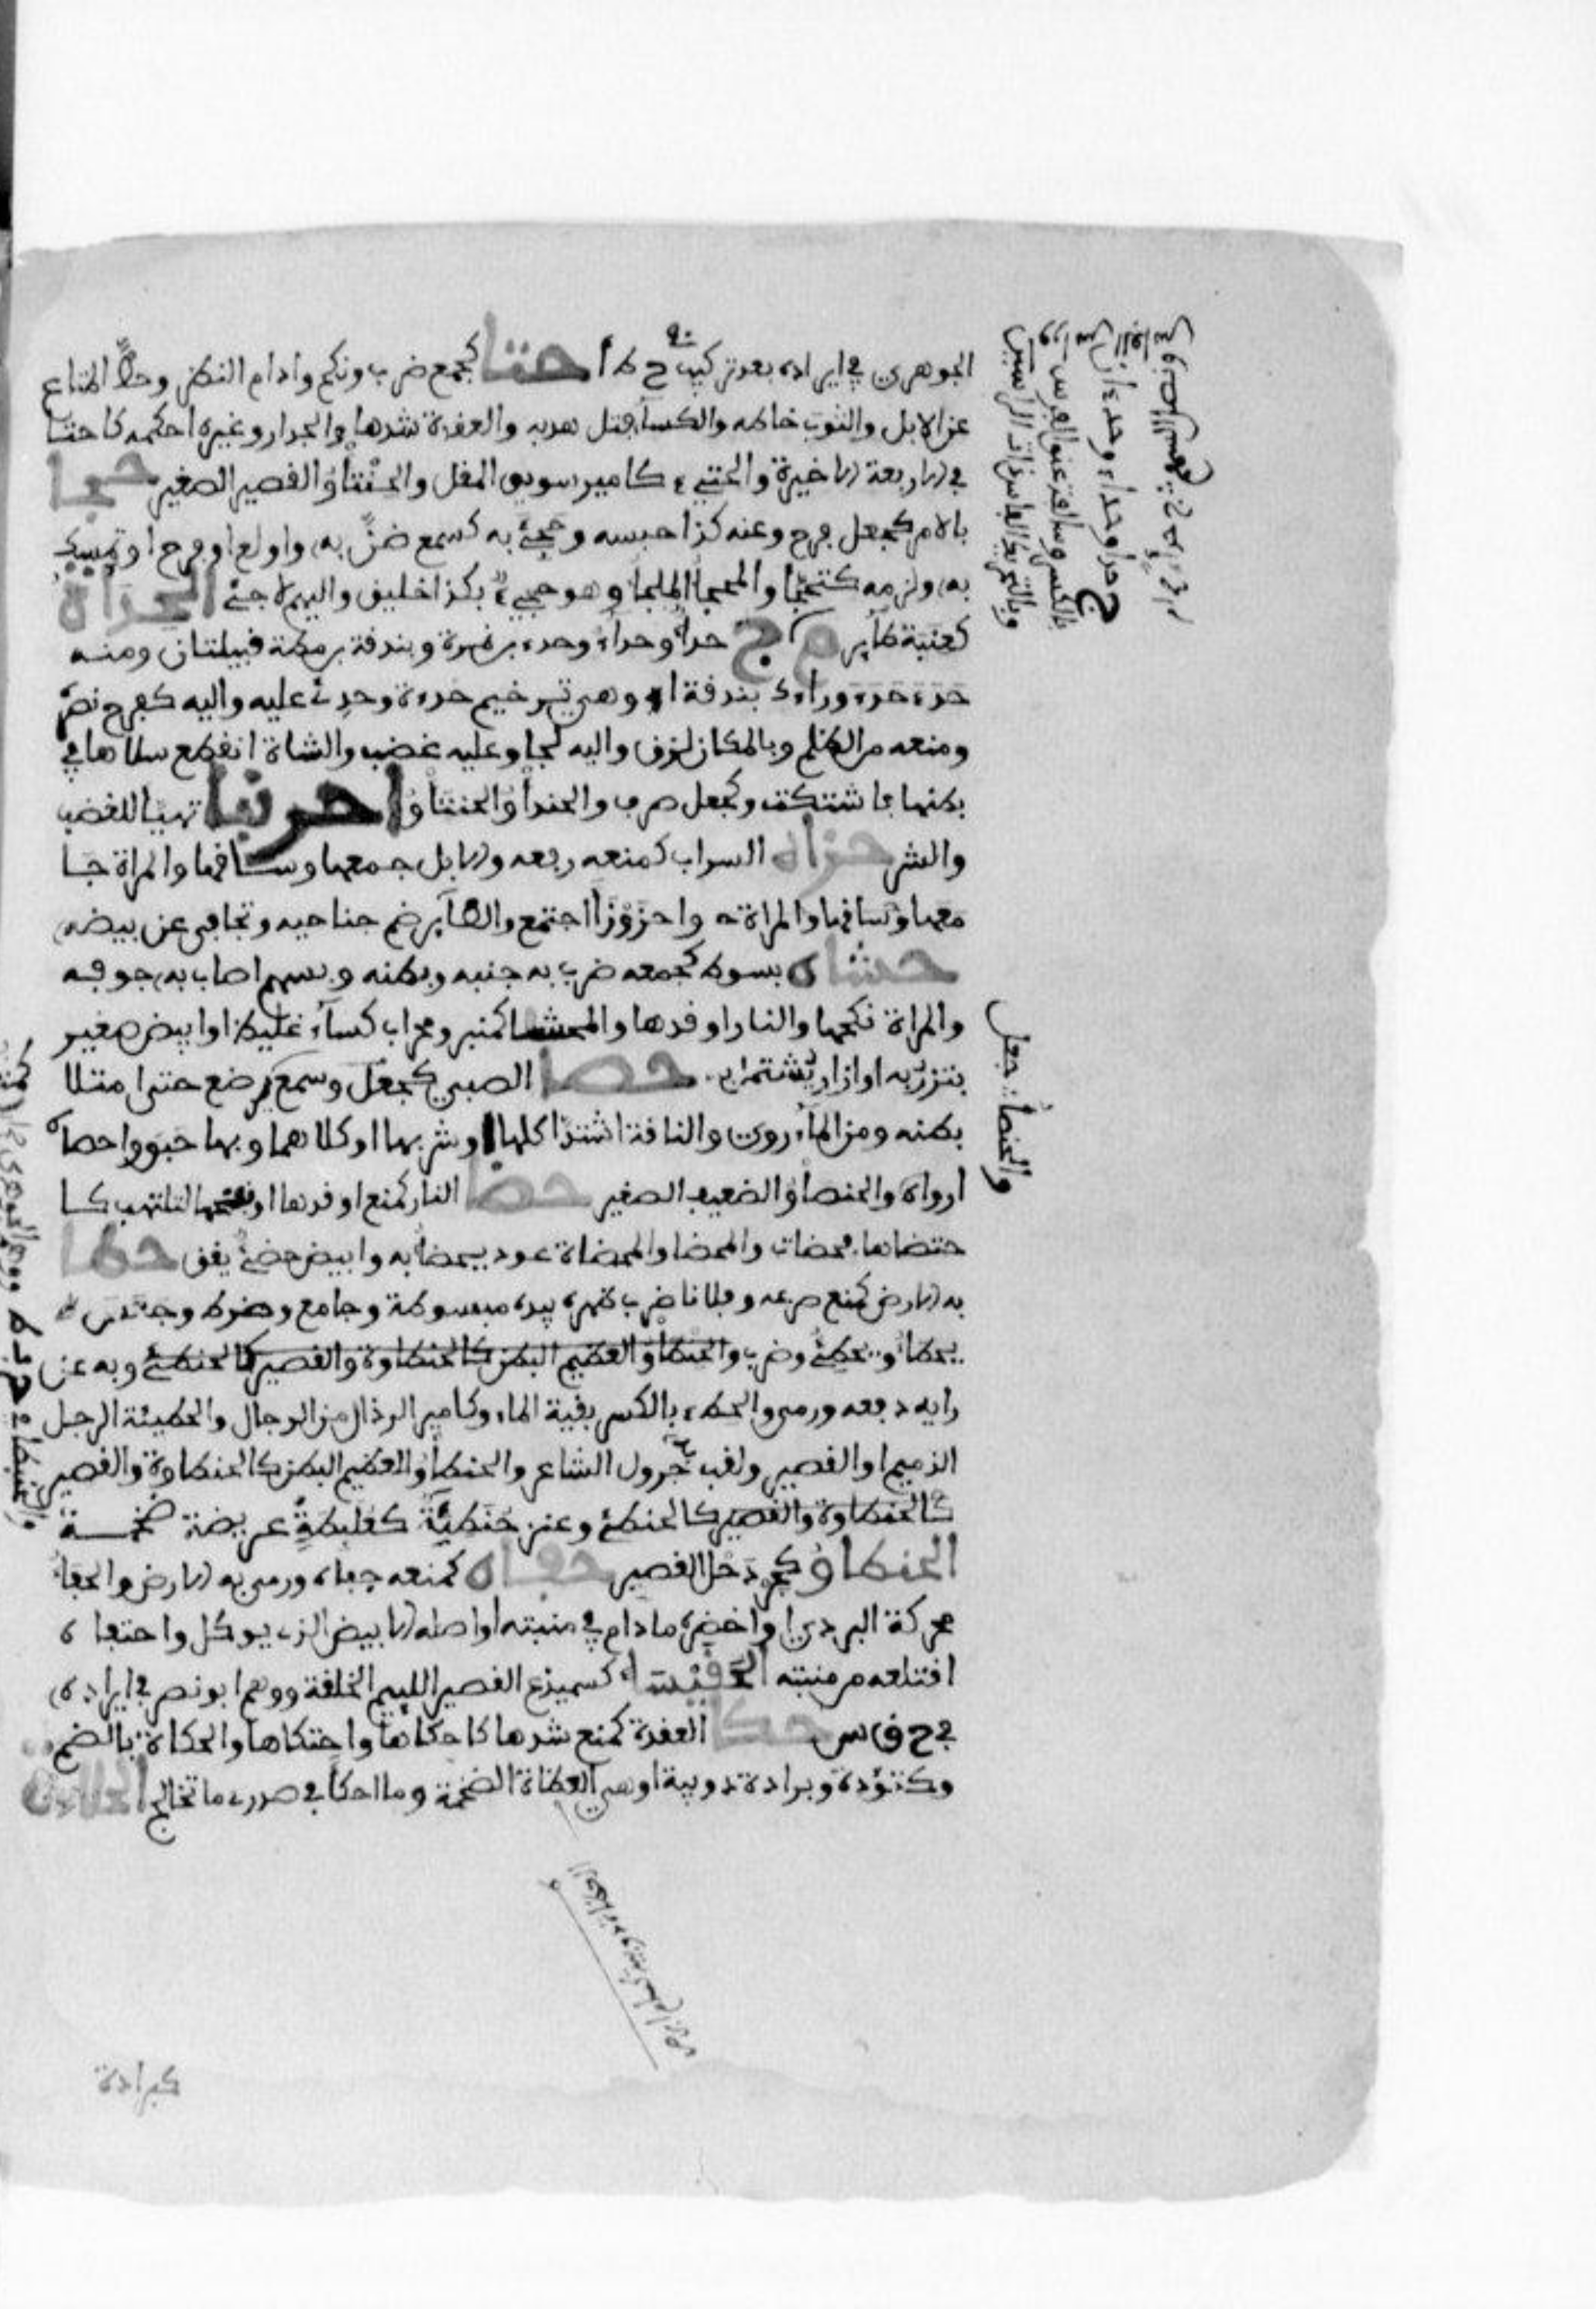 الجوهري في ايراده بعد تركيب ح ط أ حتأ كجمع ضرب ونكح وادام النظر وحط المتاع
عن الابل والثوب خاطه والكساء فتل هدبه والعقدة شدها والجدار وغيره احكمه كاحتأ
في الاربعة الاخيرة والحتيء كامير سويق المقل والحنتأو القصير الصغير حجأ
بالامر كجعل فرح وعنه كذا حبسه وحجئ به كسمع ضن به واولع او فرح او تمسك
به ولزمه كتحجأ والمحجأ الملجأ وهو حجيء بكذا خليق واليهم لاجئ الحدأة
كعنبة طائر م ج حدأ وحداء وحدء بن نمرة وبندقة بن مظة قبيلتان ومنه
حدء حدء وراءك بندقة او هي ترخيم حدءة وحدئ عليه واليه كفرح نصره
ومنعه من الظلم وبالمكان لزق واليه لجأ وعليه غضب والشاة انقطع سلاها في
بطنها فاشتكت وكجعل صرف والحندأو الحنتأو احرنبأ تهيأ للغضب
والشر حزأه السراب كمنعه رفعه والابل جمعها وساقها والمراة جا
معها وساقها والمراة واحزوزأ اجتمع والطائر ضم جناحيه وتجافى عن بيضه
حشأه بسوط كجمعه ضرب به جنبه وبطنه وبسهم اصاب به جوفه
والمراة نكحها والنار اوقدها والمحشأ كمنبر ومحراب كساء غليظ او ابيض صغير
يتزر به او ازار يشتمل به حصأ الصبي كجعل وسمع رضع حتى امتلا
بطنه ومن الماء روي والناقة اشتد اكلها او شربها او كلاهما وبها حبق واحصأه
ارواه والحنصأو الضعيف الصغير حضأ النار كمنع اوقدها او فتحها لتلتهب كا
حتضأها فحضأت والمحضأ والمحضاة عود يحضأ به وابيض حضئ يقق حطأ
به الارض كمنع صرعه وفلانا ضرب ظهره بيده مبسوطة وجامع وضرط وجعس
يحطأ ويحطئ وضرب والحنطأو العظيم البطن كالحنطاوة والقصير كالحنطئ وبه عن
رايه دفعه ورمى والحطء بالكسر بقية الماء وكامير الرذال من الرجال والحطيئة الرجل
الذميم او القصير ولقب جرول الشاعر والحنطأو العظيم البطن كالحنطاوة والقصير
كالحنطاوة والقصير كالحنطئ وعنز حنطئة كعلبطة عريضة ضخمة
الحنظأو كجردحل القصير حفأه كمنعه جفأه ورمى به الارض والحفأ
محركة البردي او اخضره ما دام في منبته او اصله الابيض الذي يوكل واحتفأه
اقتلعه من منبته الحفيسأ كسميدع القصير اللييم الخلقة ووهم ابو نصر في ايراده
في ح ف س حكأ العقدة كمنع شدها كاحكأها واحتكأها والحكأة بالضم
وكتؤدة وبرادة دويبة او هي العظاة الضخمة وما احكأ في صدري ما تخالج الحلاءة
كبرادة
ج حدأ وحداء وحدءان
بالكسر وسالفة عنق الفرس
وبالتحريك الفاس ذات الراسين
والحنصأ جعل